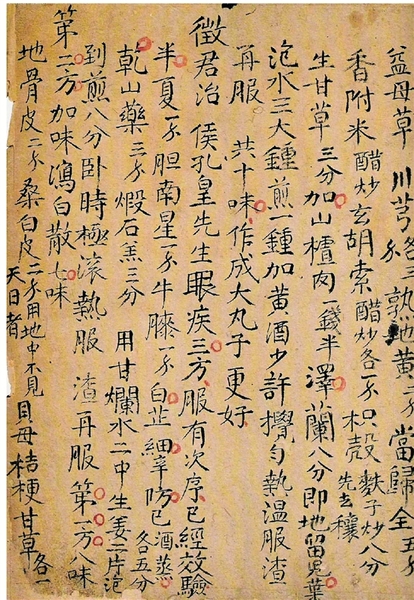 益母草 川芎各二 熟地黄一 當歸全五分
香附米醋炒 玄胡索醋炒各一 枳殼麩子炒八分先去穰
生甘草三分 加山楂肉一錢半 澤蘭八分即地留兒葉
泡水三大鍾煎一鍾加黄酒少許攪勻熱温服渣
再服 共十味作成大丸子更好
徵君治侯孔皇先生眼疾三方服有次序已經效驗
半夏一 胆南星一 牛膝一 白芷 細辛 防已酒蒸各五分
乾山藥三 煅石羔三分 用甘爛水二中生姜二片泡
到煎八分卧時極滚熱服 渣再服 第一方八味
第二方加味瀉白散七味
地骨皮二 桑白皮二 用地中不見天日者 貝母 桔梗 甘草各一